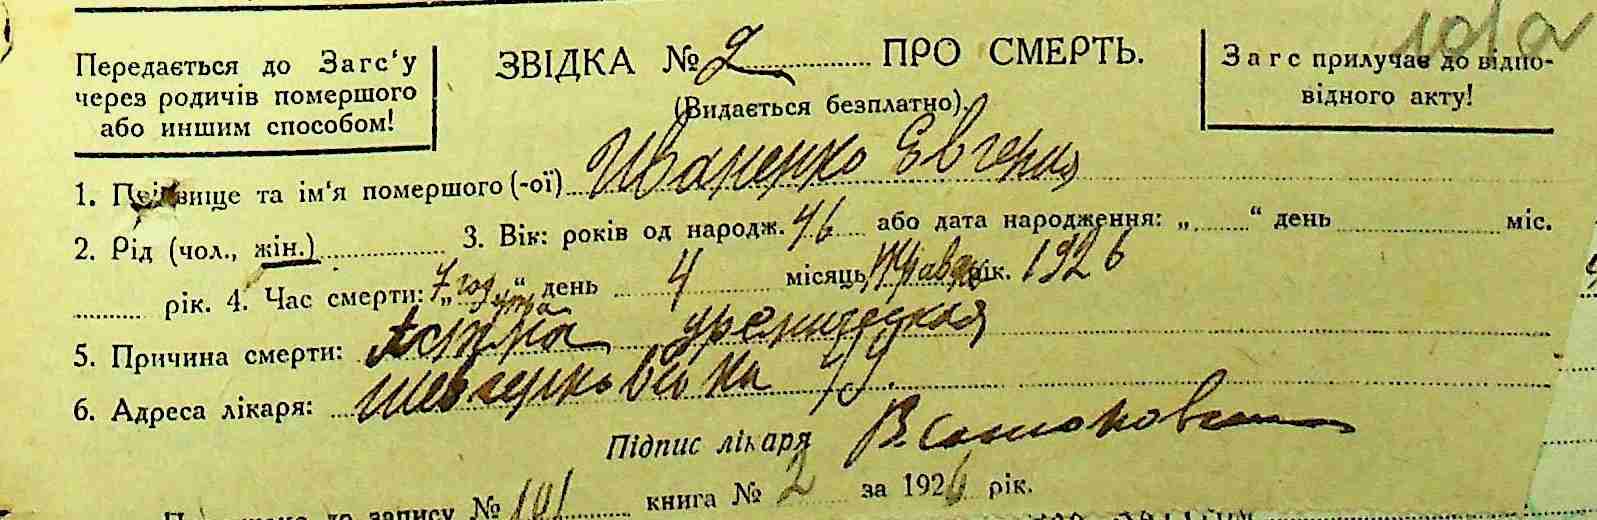 101а
Передається до Загс'у
через родичів помершого
або иншим способом!
ЗВІДКА № 2 ПРО СМЕРТЬ.
(Видається безплатно).
Загс прилучає до відпо-
відного акту!
1. Прізвище та ім'я помершого (-ої) Иваненко Евгения
2. Рід (чол., жін.) 3. Вік: років од народж. 46 або дата народження: „ “ день міс.
рік. 4. Час смерти: „7 год утра“ день 4 місяць мая рік. 1926
5. Причина смерти: Астма
6. Адреса лікаря: 
Підпис лікаря В.
до запису № 101 книга № 2 за 1926 рік.